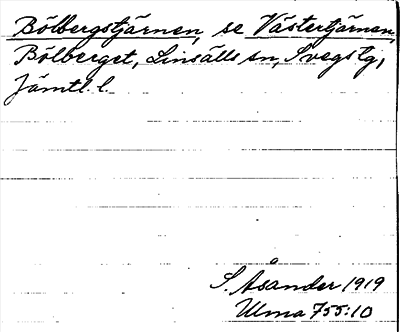 Bölbergstjärnen, se Västertjärnen,
Bölberget, Linsälls sn, Svegs tg,
Jämtl. l.
S. Åsander 1919
Ulma 755:10